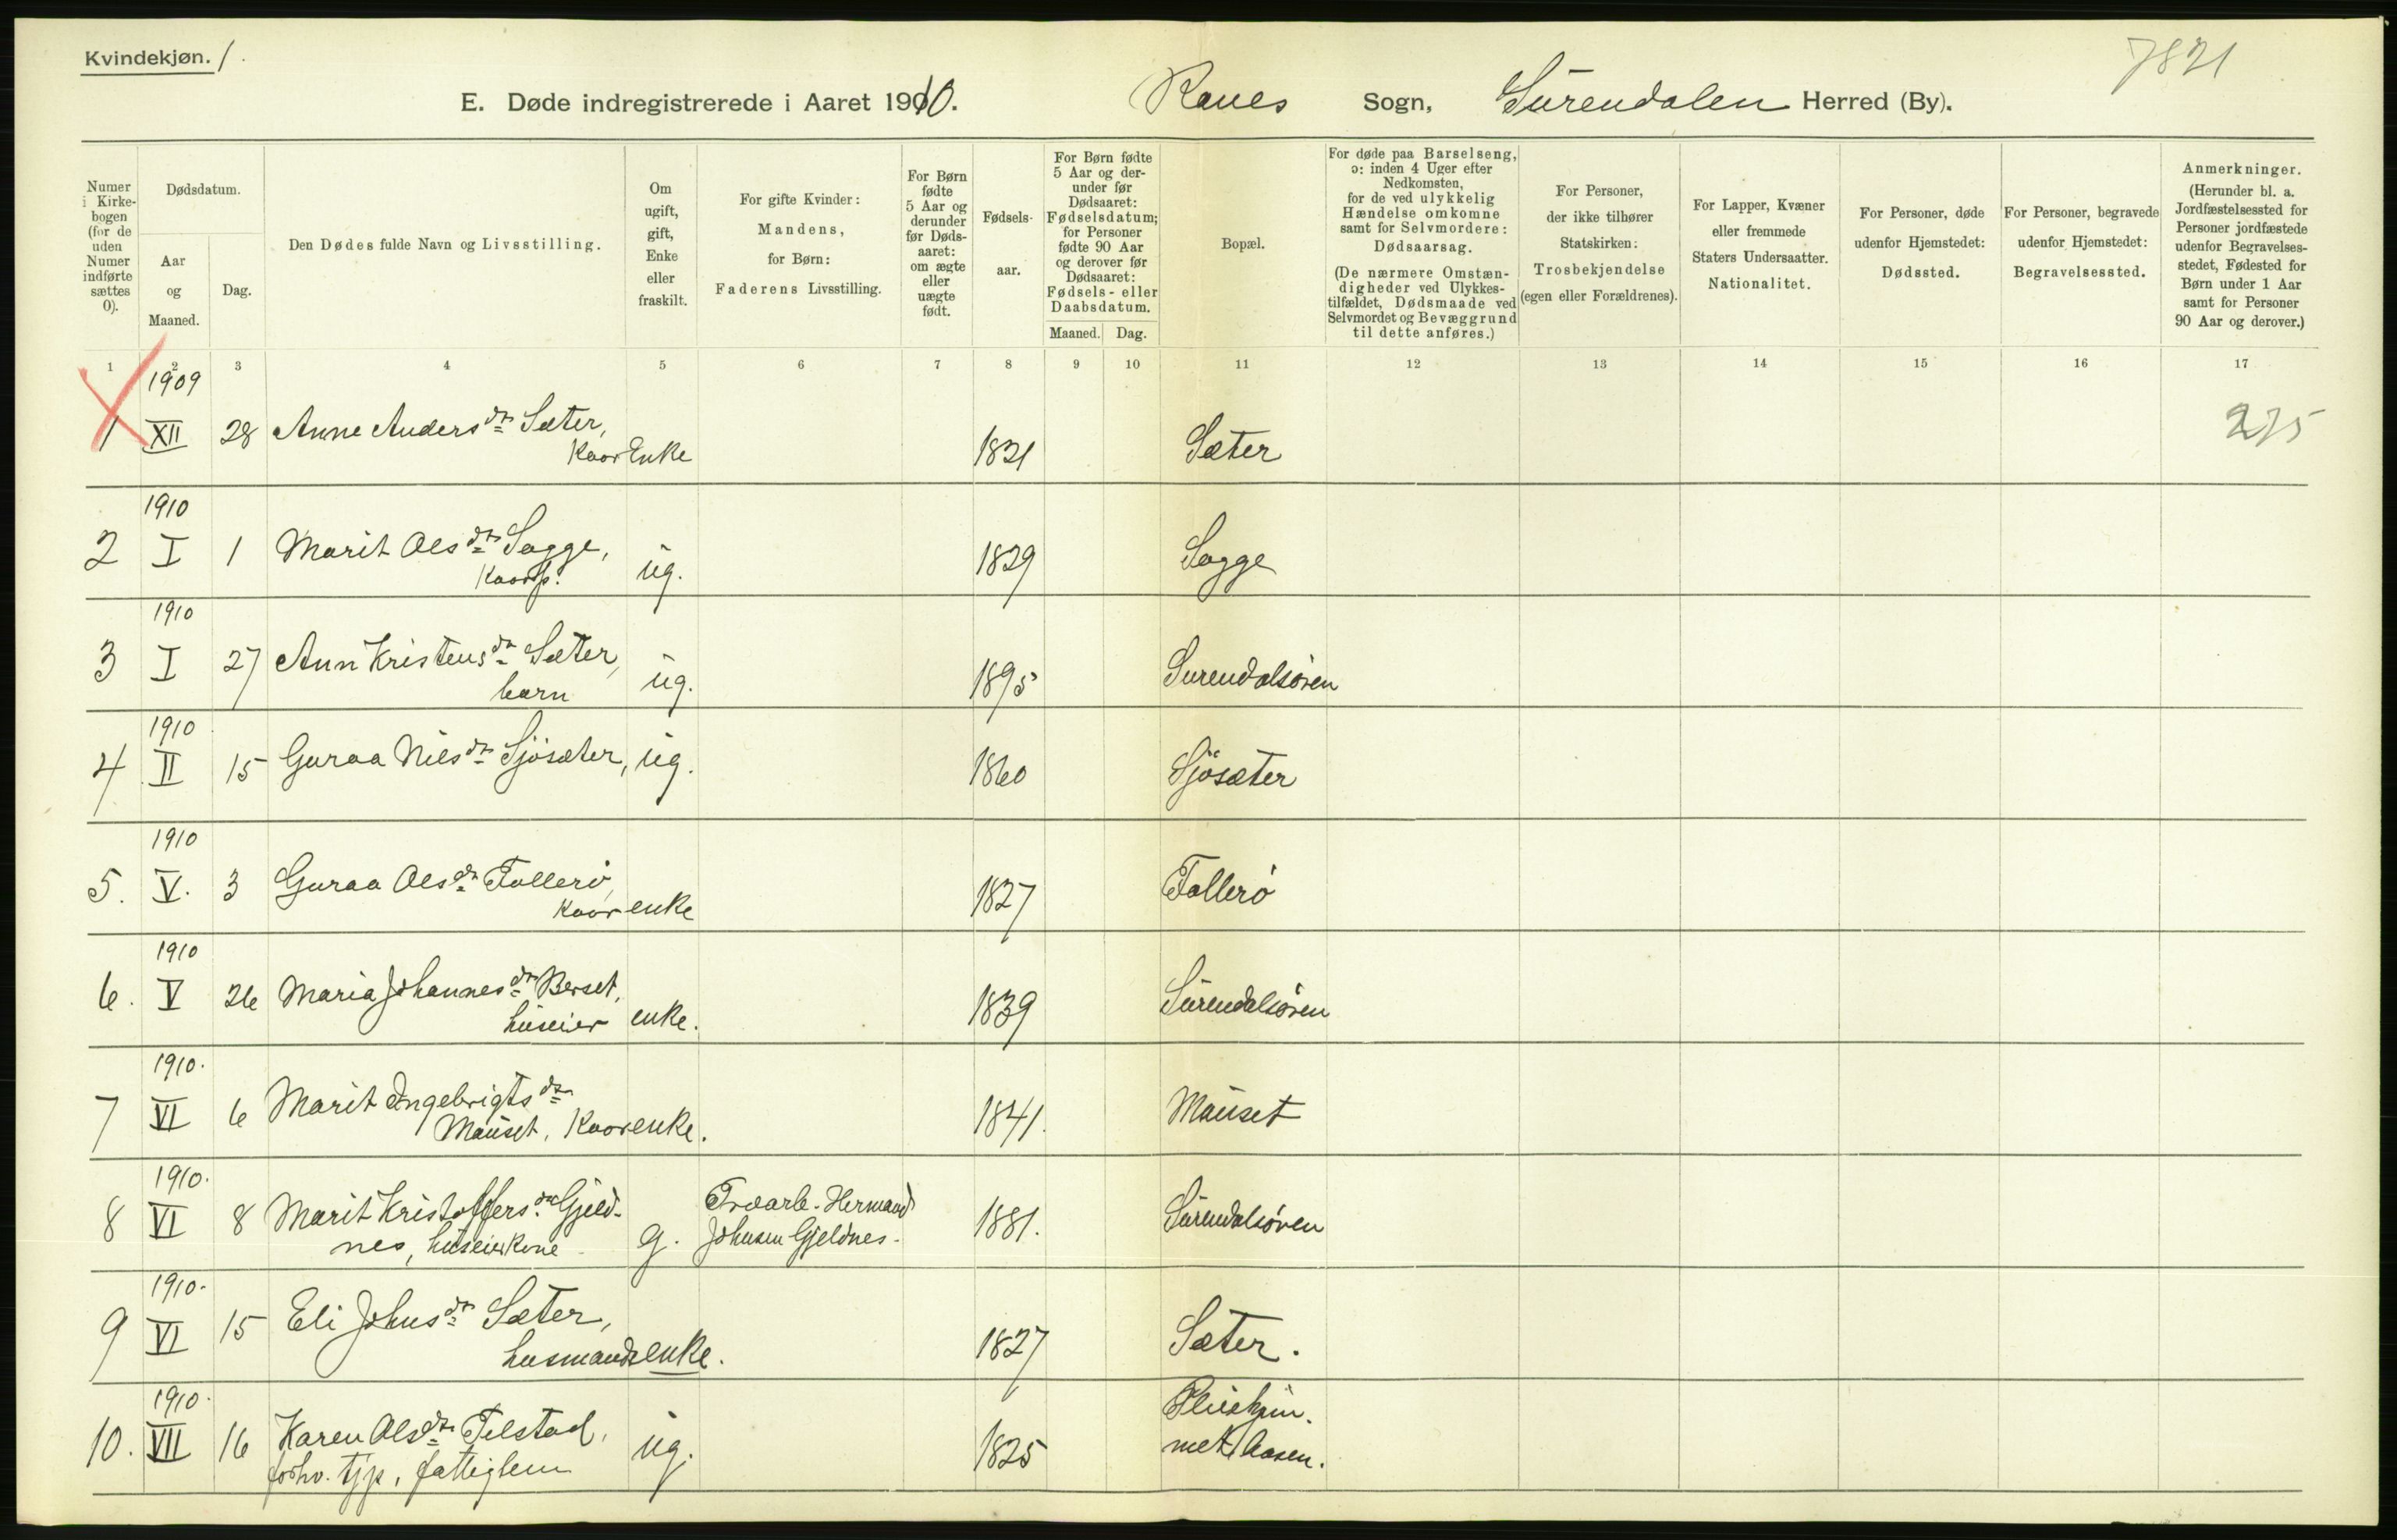 Kvindekjøn. 1.
7821
E. Døde indregistrerede i Aaret 1910. Ranes Sogn, Surendalen Herred (By).
Numer i Kirkebogen (for de uden Numer indførte sættes 0).
Dødsdatum.
Aar og Maaned.
Dag.
Den Dødes fulde Navn og Livsstilling.
Om ugift, gift, Enke eller fraskilt.
For gifte Kvinder: Mandens, for Børn: Faderens Livsstilling.
For Børn fødte 5 Aar og derunder før Dødsaaret: om ægte eller uægte født.
Fødselsaar.
For Børn fødte 5 Aar og derunder før Dødsaaret: Fødselsdatum; for Personer fødte 90 Aar og derover før Dødsaaret: Fødsels- eller Daabsdatum.
Maaned. Dag.
Bopæl.
For døde paa Barselseng, ɔ: inden 4 Uger efter Nedkomsten, for de ved ulykkelig Hændelse omkomne samt for Selvmordere: Dødsaarsag.
(De nærmere Omstændigheder ved Ulykkestilfældet, Dødsmaade ved Selvmordet og Bevæggrund til dette anføres.)
For Personer, der ikke tilhører Statskirken: Trosbekjendelse (egen eller Forældrenes).
For Lapper, Kvæner eller fremmede Staters Undersaatter. Nationalitet.
For Personer, døde udenfor Hjemstedet: Dødssted.
For Personer, begravede udenfor Hjemstedet: Begravelsessted.
Anmerkninger.
(Herunder bl. a. Jordfæstelsessted for Personer jordfæstede udenfor Begravelsesstedet, Fødested for Børn under 1 Aar samt for Personer 90 Aar og derover.)
1 2 3 4 5 6 7 8 9 10 11 12 13 14 15 16 17
1909
1 XII 28 Anne Andersdr Sæter, 1821 Sæter 275
Kaar Enke
1910
2 I 1 Marit Olsdr Sogge, ug. 1829 Sogge
Kaarp.
1910
3 I 27 Ann Kristensdr Sæter, ug. 1895 Surendalsøren
barn
1910
4 II 15 Guraa Nilsdr Sjøsæter, ug. 1860 Sjøsæter
1910
5. V. 3 Guraa Olsdr Tellerø, 1827 Tellerø
Kaarenke
1910
6. V 26 Maria Johannesdr Berset, 1839 Surendalsøren
huseier enke.
1910.
7 VI 6 Marit Ingebrigtsdr 1841. Mauset
Mauset, Kaarenke.
1910.
8 VI 8 Marit Kristoffersdr Gjeldnes, huseierkone g. Johnsen Gjeldnes. 1881. Surendalsøren
1910.
9 VI 15 Eli Johnsdr Sæter, 1827 Sæter.
husmandsenke.
1910.
10. VII 16 Karen Olsdr Telstad, ug. 1825
forhv. tjp, fattiglem